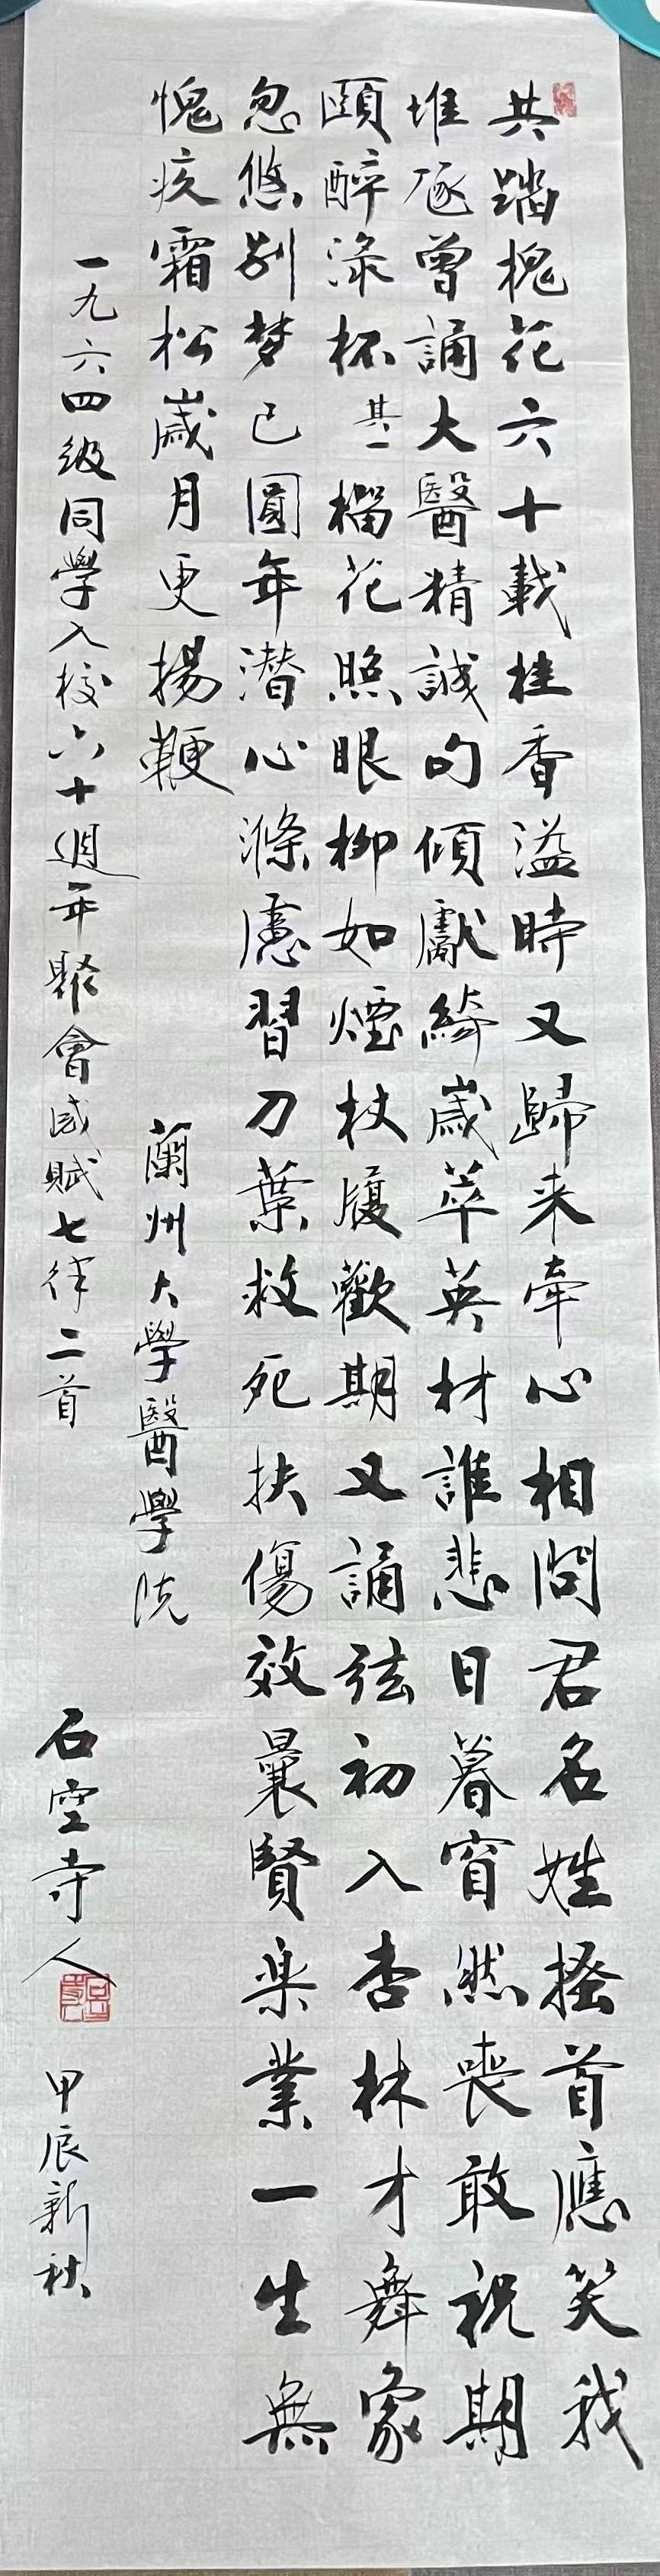 共踏槐花六十載桂香溢時又歸来牽心相問君名姓搔首應笑我
堆豗曾誦大醫精誠句傾獻綺歲萃英材誰悲日暮窅然喪敢祝期
頤醉淥杯其一榴花照眼柳如煙杖履歡期又誦弦初入杏林才舞象
忽悠別梦已圓年潜心滌慮習刀葉救死扶傷效曩賢楽業一生無
愧疚霜松歲月更揚鞭
蘭州大學醫學院
一九六四級同學入校六十週年聚會感賦七律二首
石空寺人 甲辰新秋